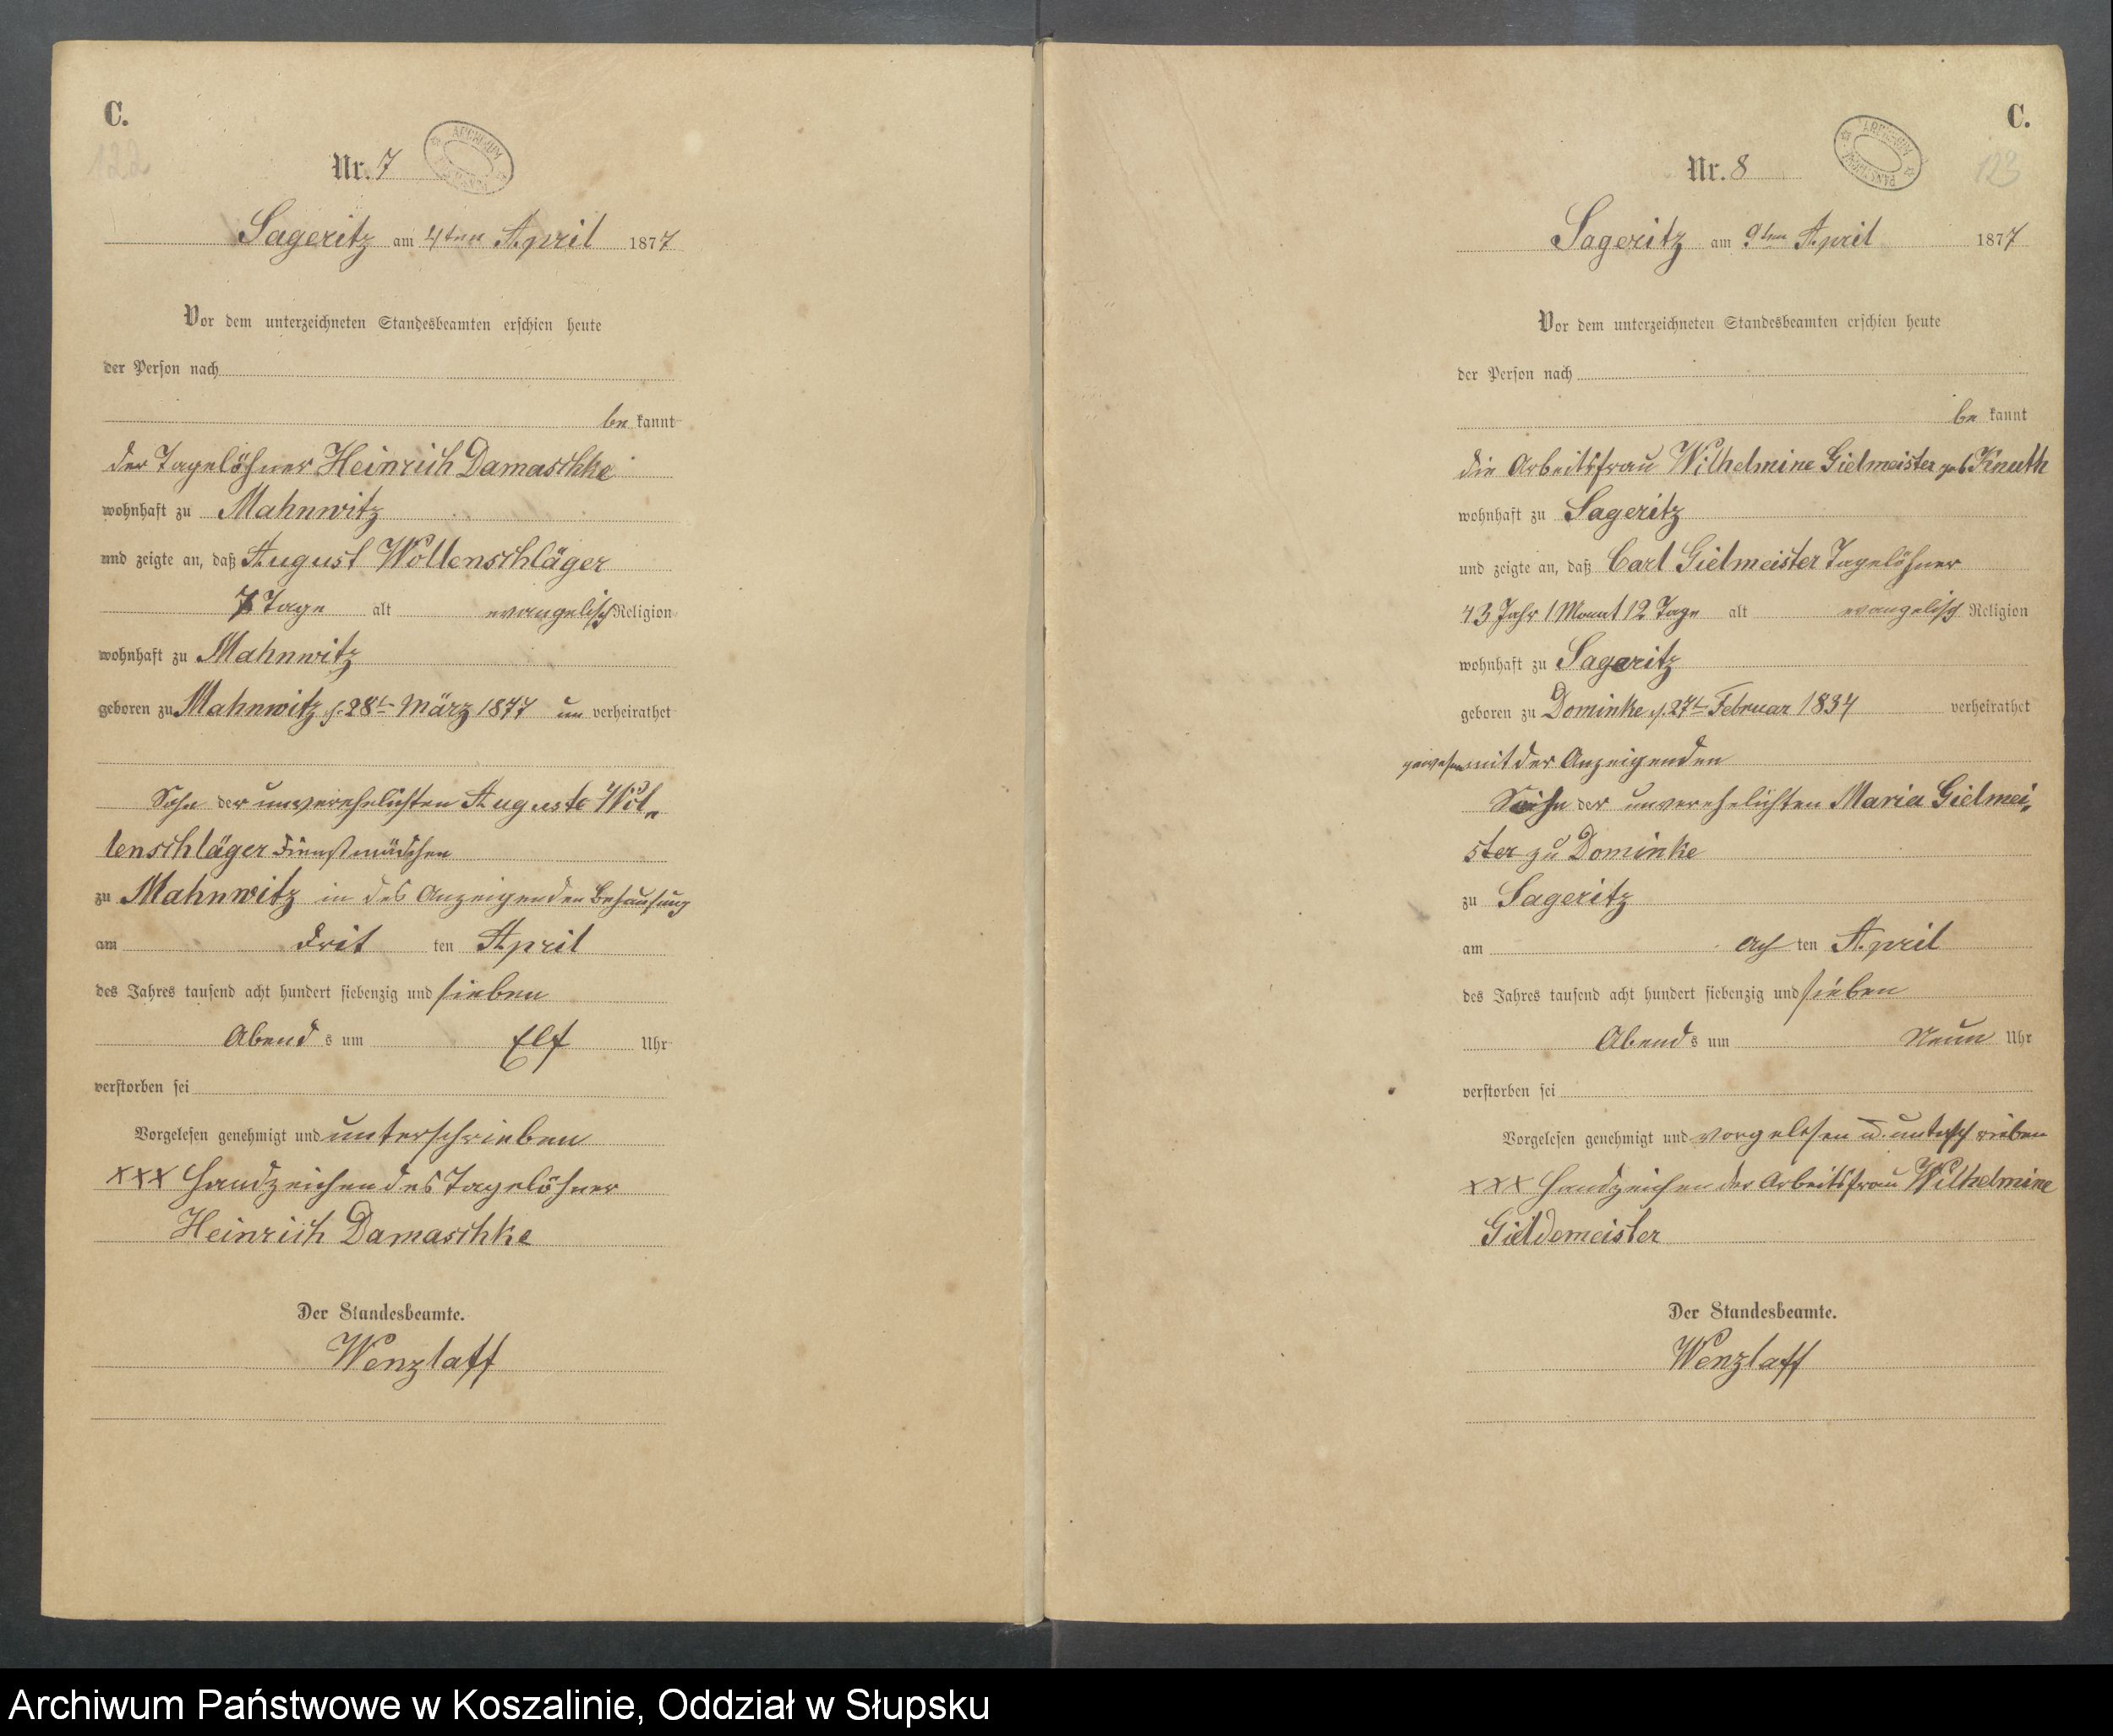 C.
122
Nr. 7
ARCHIWUM PAŃSTWOWE
Sageritz am 4ten April 1877
Vor dem unterzeichneten Standesbeamten erschien heute
der Person nach
be kannt
der Tagelöhner Heinrich Damaschke
wohnhaft zu Mahnwitz
und zeigte an, daß August Wollenschläger
7 Tage alt evangelisch Religion
wohnhaft zu Mahnwitz
geboren zu Mahnwitz d. 28t März 1877 un verheirathet
Sohn der unverehelichten Auguste Wol„
lenschläger Dienstmädchen
zu Mahnwitz in des Anzeigenden Behausung
am drit ten April
des Jahres tausend acht hundert siebenzig und sieben
Abend s um Elf Uhr
verstorben sei
Vorgelesen genehmigt und unterschrieben
XXX Handzeichen des Tagelöhner
Heinrich Damaschke
Der Standesbeamte.
Wenzlaff
C.
123
Nr. 8
Sageritz am 9ten April 1877
Vor dem unterzeichneten Standesbeamten erschien heute
der Person nach
be kannt
die Arbeitsfrau Wilhelmine Gielmeister geb Knuth
wohnhaft zu Sageritz
und zeigte an, daß Carl Gielmeister Tagelöhner
43 Jahr 1 Monat 12 Tage alt evangelisch Religion
wohnhaft zu Sageritz
geboren zu Dominke d. 27t Februar 1834 verheirathet
gewesen mit der Anzeigenden
Sohn der unverehelichten Maria Gielmei„
ster zu Dominke
zu Sageritz
am ach ten April
des Jahres tausend acht hundert siebenzig und sieben
Abend s um Neun Uhr
verstorben sei
Vorgelesen genehmigt und vorgelesen u. unterschrieben
XXX Handzeichen der Arbeitsfrau Wilhelmine
Gieldemeister
Der Standesbeamte.
Wenzlaff
Archiwum Państwowe w Koszalinie, Oddział w Słupsku